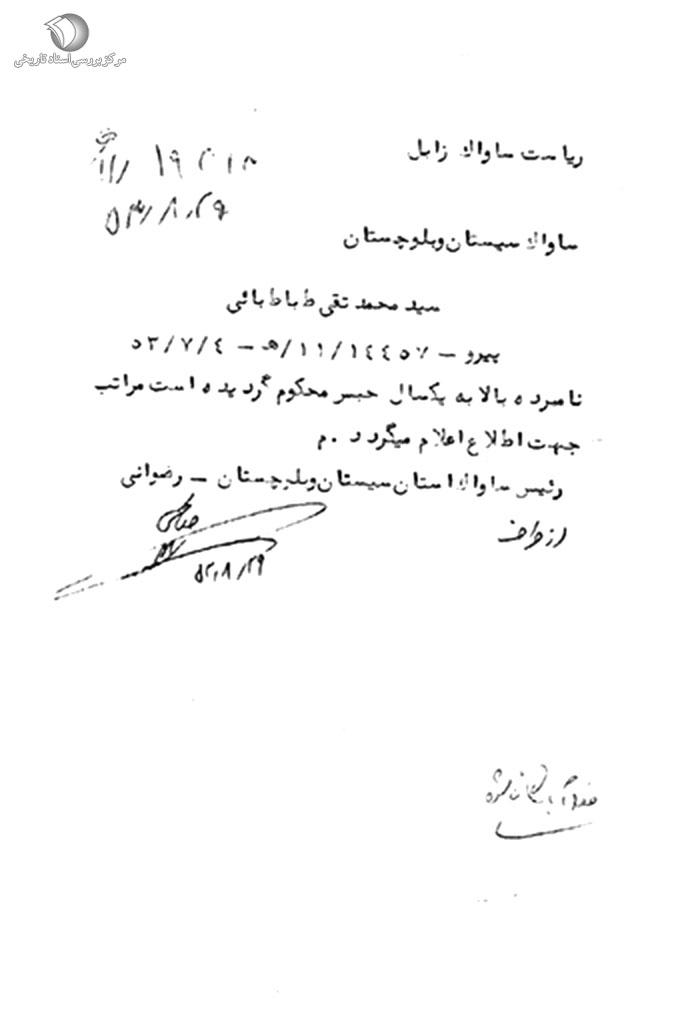 مرکز بررسی اسناد تاریخی
ریاست ساواك زابل
۵۳/۸/۲۹
ساواك سیستان وبلوچستان
سید محمد تقی طباطبائی
پیرو – ۱۱/۱۴٤٥٧/هـ – ٥٣/٧/٤
نامبرده بالا به یکسال حبس محکوم گردیده است مراتب
جهت اطلاع اعلام میگردد .م
رئیس ساواك استان سیستان وبلوچستان – رضوانی
از طرف
۵۳/۸/۲۹